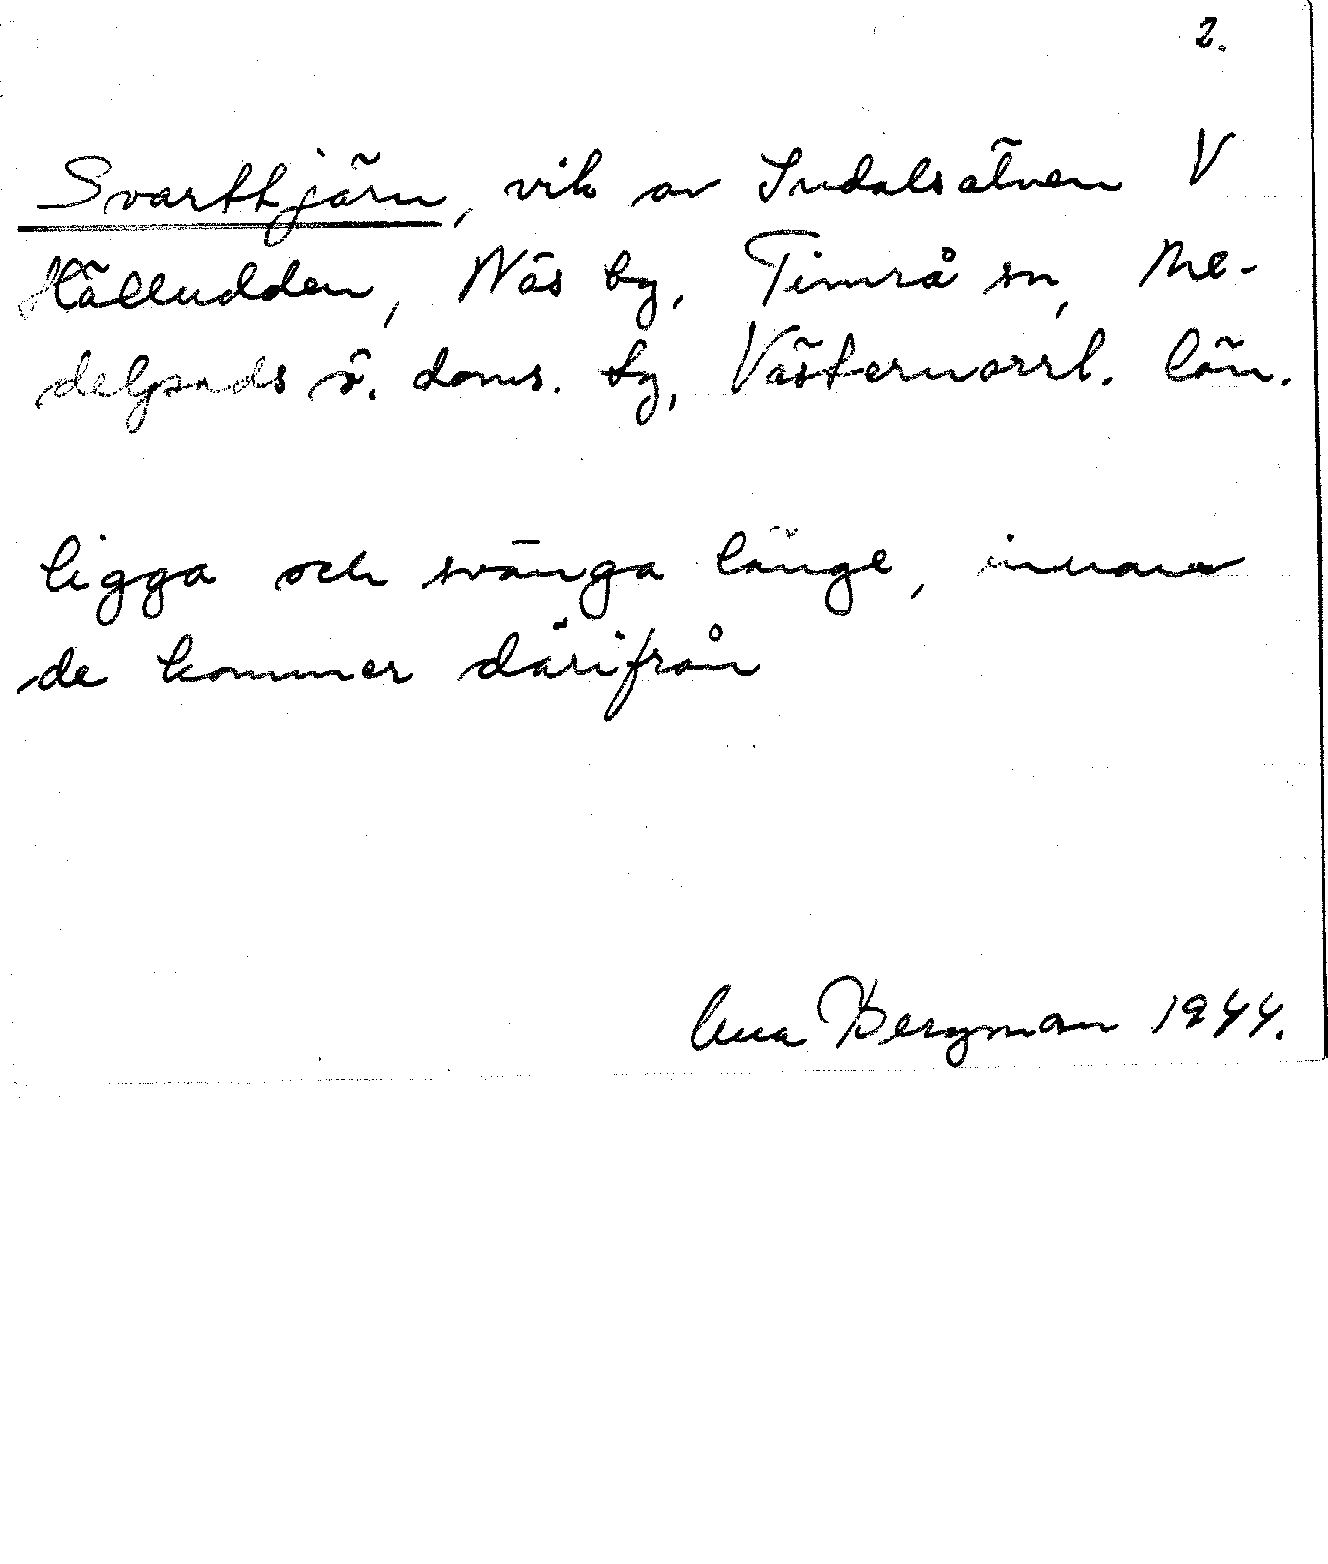 2.
Svarttjärn, vik av Indalsälven V
Hälludden, Näs by, Timrå sn, Me-
delpads ö. doms. tg, Västernorrl. län.
ligga och svänga länge, innan
de kommer därifrån
Ann Bergman 1944.